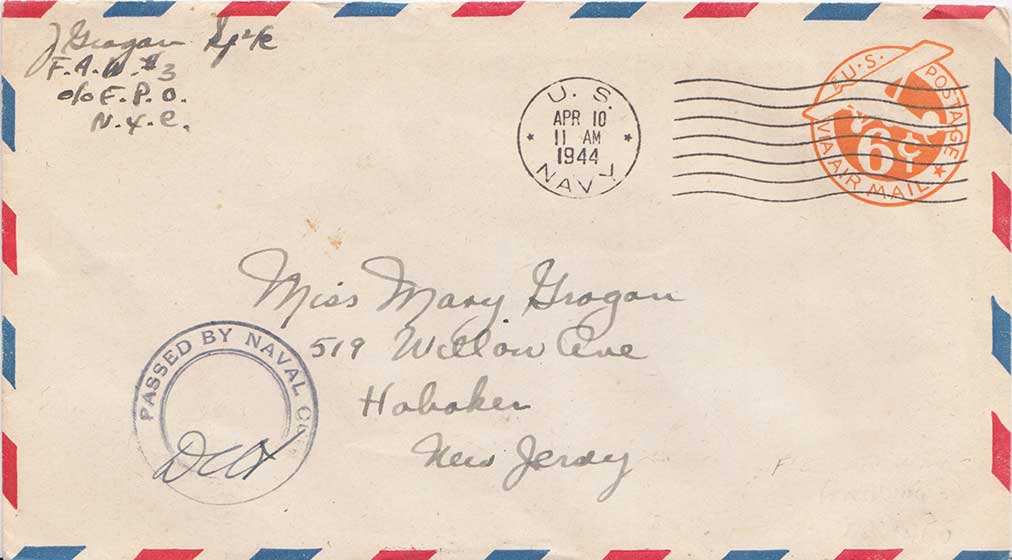 J Grogan
F.A.W. #3
c/o F.P.O.
N.Y.C.
U. S.
APR 10
11 AM
1944
NAVY
U.S. POSTAGE
6¢
VIA AIR MAIL
Miss Mary Grogan
519 Willow Ave
Hoboken
New Jersey
PASSED BY NAVAL